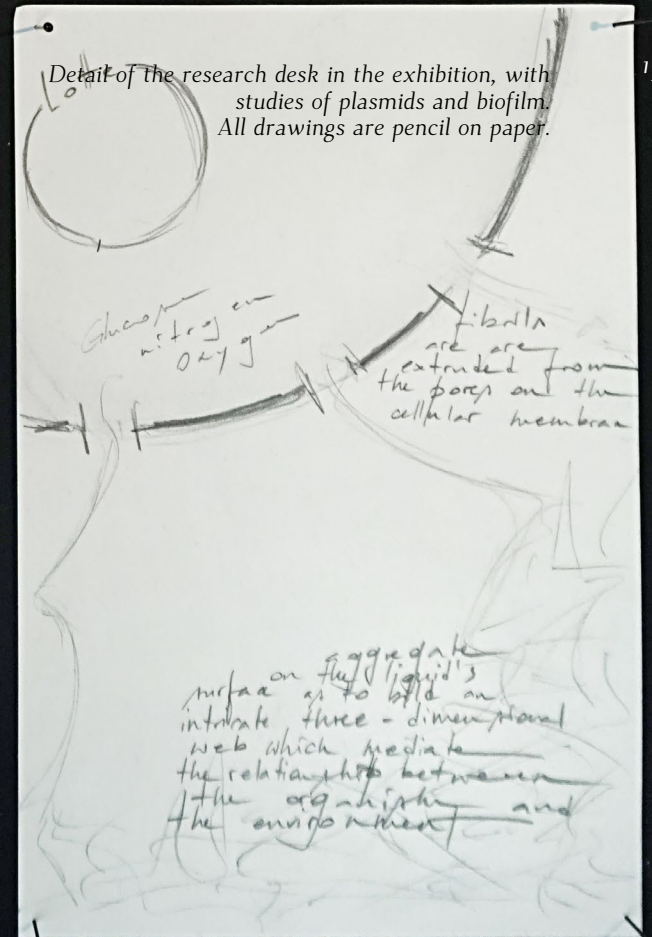 Detail of the research desk in the exhibition, with
studies of plasmids and biofilm.
All drawings are pencil on paper.
nitrogen
oxygen
are are
extruded from
the pores on the
cellular membran
aggregate
on the liquid's
surface as to bild an
intricate three-dimensional
web which mediate
the relationship between
the organism and
the environment